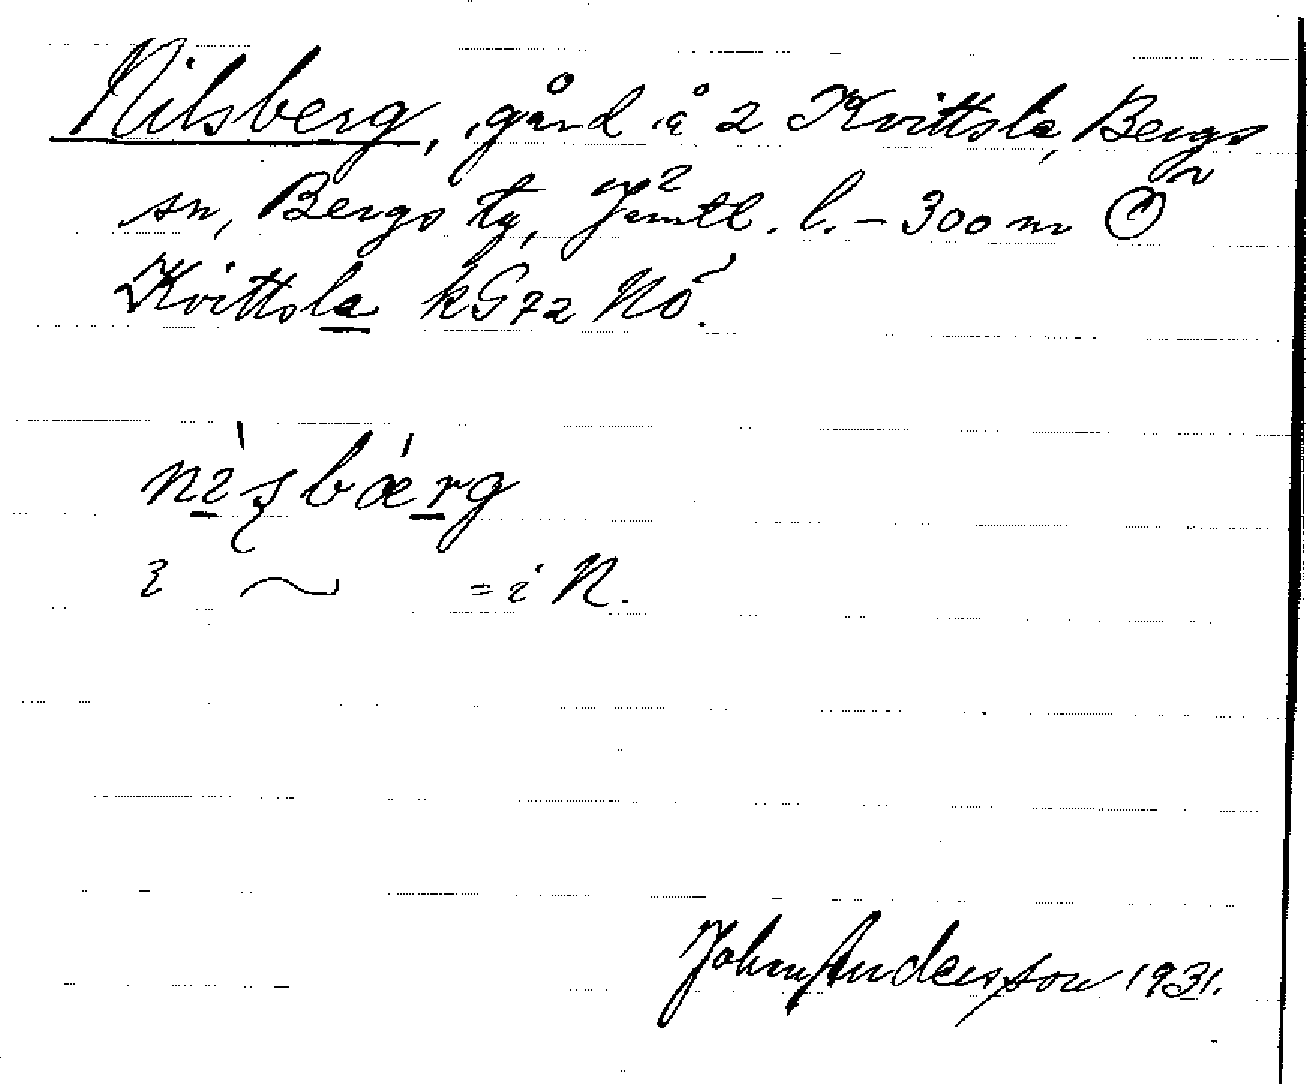 Nilsberg, gård å 2 Kvittsla, Bergs
sn, Bergs tg, Jämtl. l. – 300 m Ö
Kvittsla k G72 NÖ.
= i N.
John Andersson 1931.